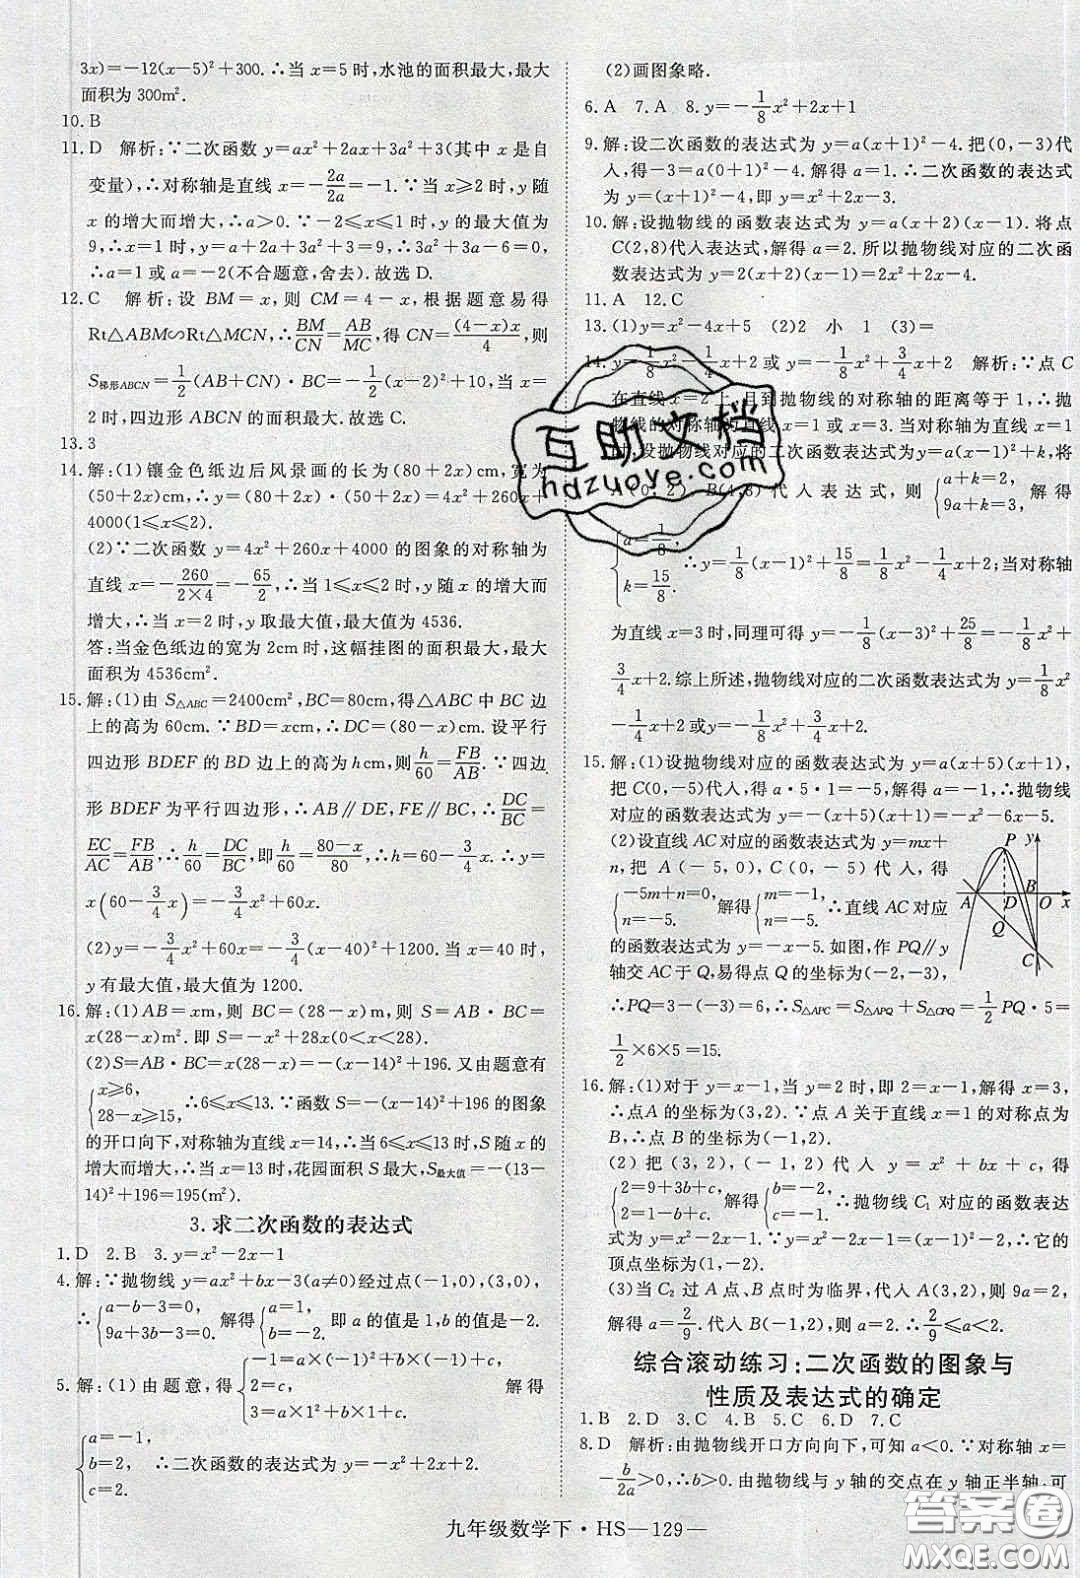 3x)=-12(x-5)²+300.∴当 x=5时,水池的面积最大,最大
面积为 300m².
10. B
11. D 解析:∵二次函数 y=ax²+2ax+3a²+3(其中 x 是自
变量),∴对称轴是直线 x=-2a/2a=-1.∵当 x≥2 时,y 随
x 的增大而增大,∴a>0.∵-2≤x≤1 时,y 的最大值为
9,∴x=1 时,y=a+2a+3a²+3=9,∴3a²+3a-6=0,
∴a=1 或 a=-2(不合题意,舍去).故选 D.
12. C 解析:设 BM=x,则 CM=4-x,根据题意易得
Rt△ABM∽Rt△MCN,∴BM/CN=AB/MC,得 CN=(4-x)x/4,则
S梯形ABCN=1/2(AB+CN)·BC=-1/2(x-2)²+10,当 x=
2 时,四边形 ABCN 的面积最大.故选 C.
13. 3
14. 解:(1)镶金色纸边后风景画的长为(80+2x)cm,宽为
(50+2x)cm,∴y=(80+2x)·(50+2x)=4x²+260x+
4000(1≤x≤2).
(2)∵二次函数 y=4x²+260x+4000 的图象的对称轴为
直线 x=-260/2×4=-65/2,∴当 1≤x≤2 时,y 随 x 的增大而
增大,∴当 x=2 时,y 取最大值,最大值为 4536.
答:当金色纸边的宽为 2cm 时,这幅挂图的面积最大,最
大面积为 4536cm².
15. 解:(1)由 S△ABC=2400cm²,BC=80cm,得△ABC 中 BC 边
上的高为 60cm.∵BD=xcm,∴DC=(80-x)cm.设平行
四边形 BDEF 的 BD 边上的高为 hcm,则h/60=FB/AB.∵四边
形 BDEF 为平行四边形,∴AB∥DE,FE∥BC,∴DC/BC=
EC/AC=FB/AB,∴h/60=DC/BC,即h/60=80-x/80.∴h=60-3/4x.∴y=
x(60-3/4x)=-3/4x²+60x.
(2)y=-3/4x²+60x=-3/4(x-40)²+1200.当 x=40 时,
y 有最大值,最大值为 1200.
16. 解:(1)AB=xm,则 BC=(28-x)m,所以 S=AB·BC=
x(28-x)m².即 S=-x²+28x(0<x<28).
(2)S=AB·BC=x(28-x)=-(x-14)²+196.又由题意有
{x≥6, 28-x≥15, ∴6≤x≤13.∵函数 S=-(x-14)²+196 的图象
的开口向下,对称轴为直线 x=14,∴当 6≤x≤13 时,S 随 x 的
增大而增大,∴当 x=13 时,花园面积 S 最大,S最大值=-(13-
14)²+196=195(m²).
3.求二次函数的表达式
1. D 2. B 3. y=x²-2x-1
4. 解:∵抛物线 y=ax²+bx-3(a≠0)经过点(-1,0),(3,0),
∴{a-b-3=0, 9a+3b-3=0, 解得{a=1, b=-2. 即 a 的值是 1,b 的值是-2.
5. 解:(1)由题意,得{-1=a×(-1)²+b×(-1)+c, 2=c, 3=a×1²+b×1+c, 解得
{a=-1, b=2, c=2. ∴二次函数的表达式为 y=-x²+2x+2.
(2)画图象略.
6. A 7. A 8. y=-1/8x²+2x+1
9. 解:设二次函数的表达式为 y=a(x+1)²-4.把(0,-3)代
入,得-3=a(0+1)²-4.解得 a=1.∴二次函数的表达式
为 y=(x+1)²-4,即 y=x²+2x-3.
10. 解:设抛物线的函数表达式为 y=a(x+2)(x-1).将点
C(2,8)代入表达式,解得 a=2.所以抛物线对应的二次函
数表达式为 y=2(x+2)(x-1)=2x²+2x-4.
11. A 12. C
13. (1)y=x²-4x+5 (2)2 小 1 (3)=
14. y=1/8x²-1/4x+2 或 y=-1/8x²+3/4x+2 解析:∵点 C
在直线 x=2 上,且到抛物线的对称轴的距离等于 1,∴抛
物线的对称轴为直线 x=1 或 x=3.当对称轴为直线 x=1
时,设抛物线对应的二次函数表达式为 y=a(x-1)²+k,将
(0,2) B(4,3)代入表达式,则{a+k=2, 9a+k=3, 解得
{a=1/8, k=15/8. ∴y=1/8(x-1)²+15/8=1/8x²-1/4x+2;当对称轴
为直线 x=3 时,同理可得 y=-1/8(x-3)²+25/8=-1/8x²+
3/4x+2.综上所述,抛物线对应的二次函数表达式为 y=1/8x²
-1/4x+2 或 y=-1/8x²+3/4x+2.
15. 解:(1)设抛物线对应的函数表达式为 y=a(x+5)(x+1),
把 C(0,-5)代入,得 a·5·1=-5,解得 a=-1,∴抛物线
对应的函数表达式为 y=-(x+5)(x+1)=-x²-6x-5.
(2)设直线 AC 对应的函数表达式为 y=mx+
n,把 A(-5,0),C(0,-5)代入,得
{-5m+n=0, n=-5. 解得{m=-1, n=-5. ∴直线 AC 对应
的函数表达式为 y=-x-5.如图,作 PQ∥y
轴交 AC 于 Q,易得点 Q 的坐标为(-2,-3),
∴PQ=3-(-3)=6,∴S△APC=S△APQ+S△CPQ=1/2PQ·5=
1/2×6×5=15.
y
P
A D B O x
Q
C
16. 解:(1)对于 y=x-1,当 y=2 时,即 2=x-1,解得 x=3,
∴点 A 的坐标为(3,2).∵点 A 关于直线 x=1 的对称点为
B,∴点 B 的坐标为(-1,2).
(2)把(3,2),(-1,2)代入 y=x²+bx+c,得
{2=9+3b+c, 2=1-b+c. 解得{b=-2, c=-1. ∴抛物线 C₁ 对应的函数表达
式为 y=x²-2x-1.∵y=x²-2x-1=(x-1)²-2,∴它的
顶点坐标为(1,-2).
(3)当 C₂ 过 A 点、B 点时为临界,代入 A(3,2),则 9a=2,
解得 a=2/9.代入 B(-1,2),解得 a=2,∴2/9≤a<2.
综合滚动练习:二次函数的图象与
性质及表达式的确定
1. B 2. D 3. C 4. B 5. C 6. D 7. C
8. D 解析:由抛物线开口方向向下,可知 a<0.∵对称轴 x=
-b/2a>0,∴b>0.由抛物线与 y 轴的交点在 y 轴正半轴,可
九年级数学下·HS—129—
互助文档
hdzuoye.com
答案圈
MXQE.COM